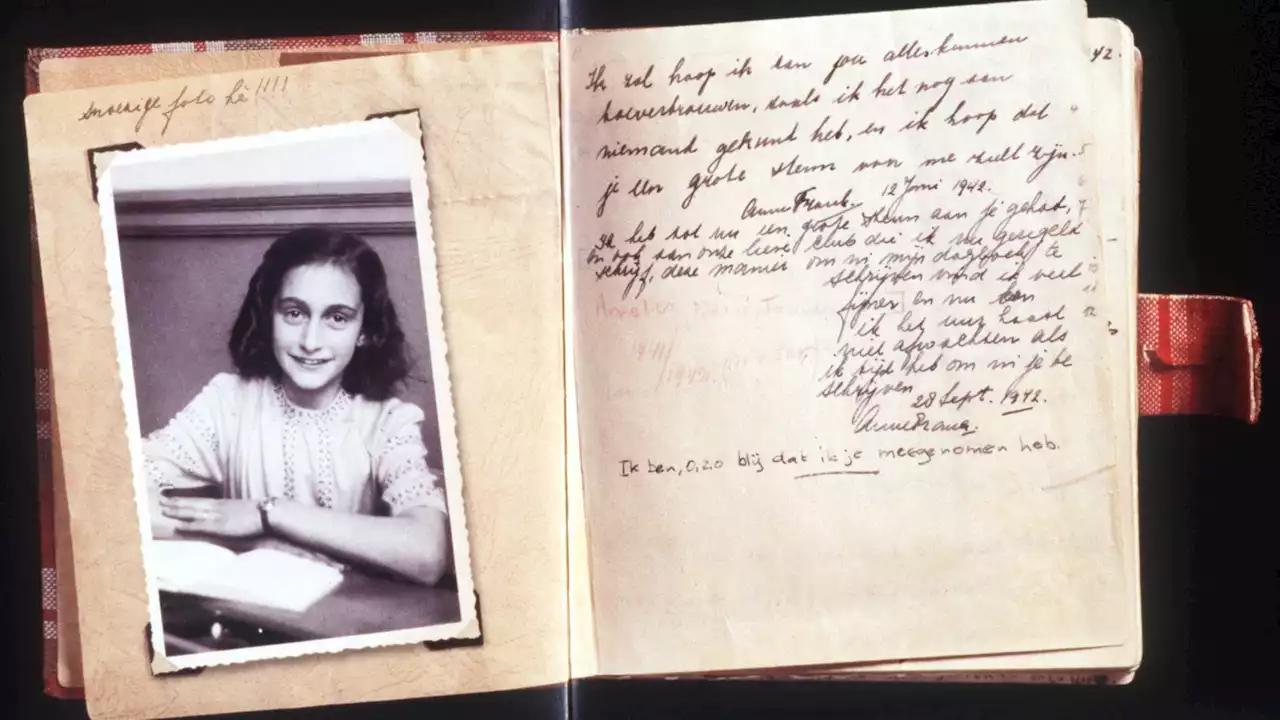 Snoezige foto hè!!!!
42.
Ik zal hoop ik aan jou alles kunnen
toevertrouwen, zoals ik het nog aan
niemand gekund heb, en ik hoop dat
je een grote steun voor me zult zijn.
Anne Frank. 12 Juni 1942.
Ik heb tot nu een grote steun aan je gehad,
en ook aan onze lieve club die ik nu geregeld
schrijf, deze manier om in mijn dagboek te
schrijven vind ik veel
fijner en nu kan
ik het uur haast
niet afwachten als
ik tijd heb om in je te
schrijven
28 Sept. 1942.
Anne Frank.
Ik ben, o, zo blij dat ik je meegenomen heb.